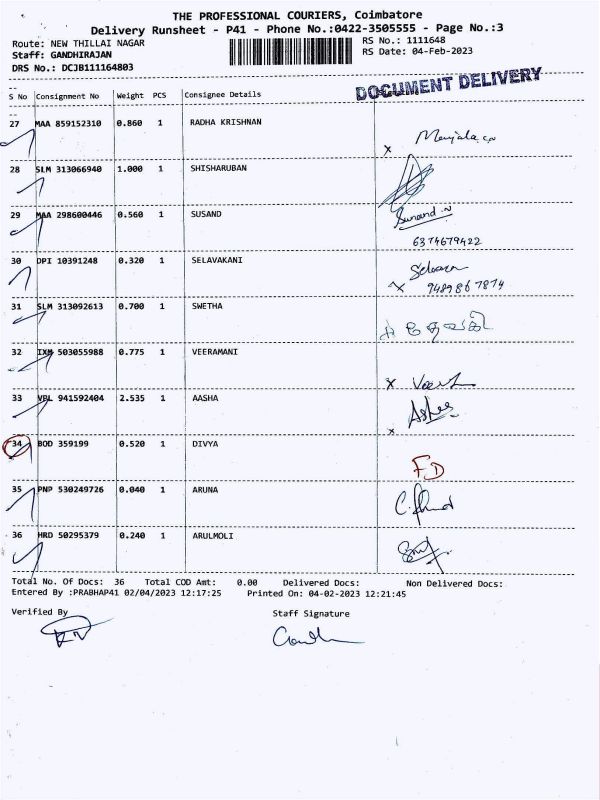 THE PROFESSIONAL COURIERS, Coimbatore
Delivery Runsheet - P41 - Phone No.:0422-3505555 - Page No.:3
Route: NEW THILLAI NAGAR RS No.: 1111648
Staff: GANDHIRAJAN RS Date: 04-Feb-2023
DRS No.: DCJB111164803
DOCUMENT DELIVERY
S No Consignment No Weight PCS Consignee Details
27 MAA 859152310 0.860 1 RADHA KRISHNAN
28 SLM 313066940 1.000 1 SHISHARUBAN
29 MAA 298600446 0.560 1 SUSAND Sunand.N
6374679422
30 DPI 10391248 0.320 1 SELAVAKANI
9489867874
31 SLM 313092613 0.700 1 SWETHA
32 IXM 503055988 0.775 1 VEERAMANI
33 VBL 941592404 2.535 1 AASHA
34 BOD 359199 0.520 1 DIVYA FD
35 PNP 530249726 0.040 1 ARUNA
36 HRD 50295379 0.240 1 ARULMOLI
Total No. Of Docs: 36 Total COD Amt: 0.00 Delivered Docs: Non Delivered Docs:
Entered By :PRABHAP41 02/04/2023 12:17:25 Printed On: 04-02-2023 12:21:45
Verified By Staff Signature